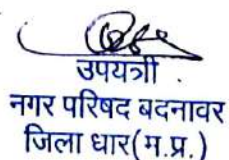 उपयत्री
नगर परिषद बदनावर
जिला धार(म.प्र.)